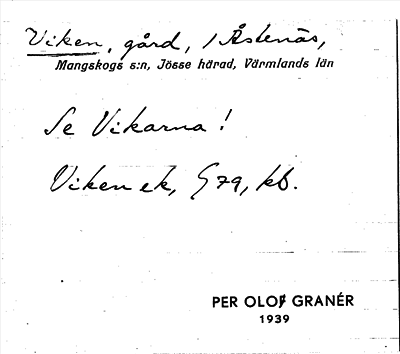 Viken, gård, i Åstenäs,
Mangskogs s:n, Jösse härad, Värmlands län
Se Vikarna!
Viken ek, § 79, kb.
PER OLOF GRANÉR
1939